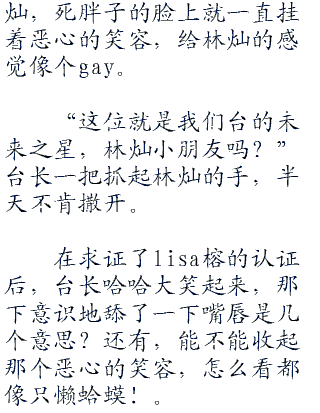 灿，死胖子的脸上就一直挂
着恶心的笑容，给林灿的感
觉像个gay。
“这位就是我们台的未
来之星，林灿小朋友吗？”
台长一把抓起林灿的手，半
天不肯撒开。
在求证了lisa榕的认证
后，台长哈哈大笑起来，那
下意识地舔了一下嘴唇是几
个意思？还有，能不能收起
那个恶心的笑容，怎么看都
像只懒蛤蟆！。